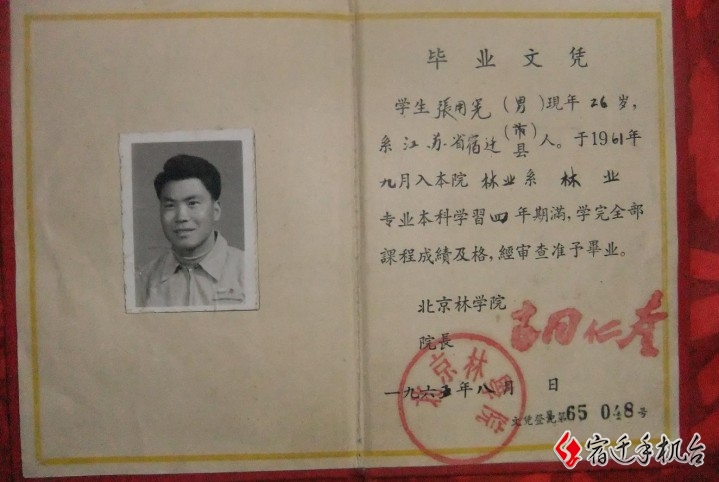 毕业文凭
学生張用宪(男)現年26岁,
系江苏省宿迁(市县)人。于1961年
九月入本院林业系林业
专业本科学習四年期滿,学完全部
課程成績及格,經审查准予畢业。
北京林学院
院長
一九六五年八月 日
北京林學院
文凭登 第65 048号
宿迁手机台